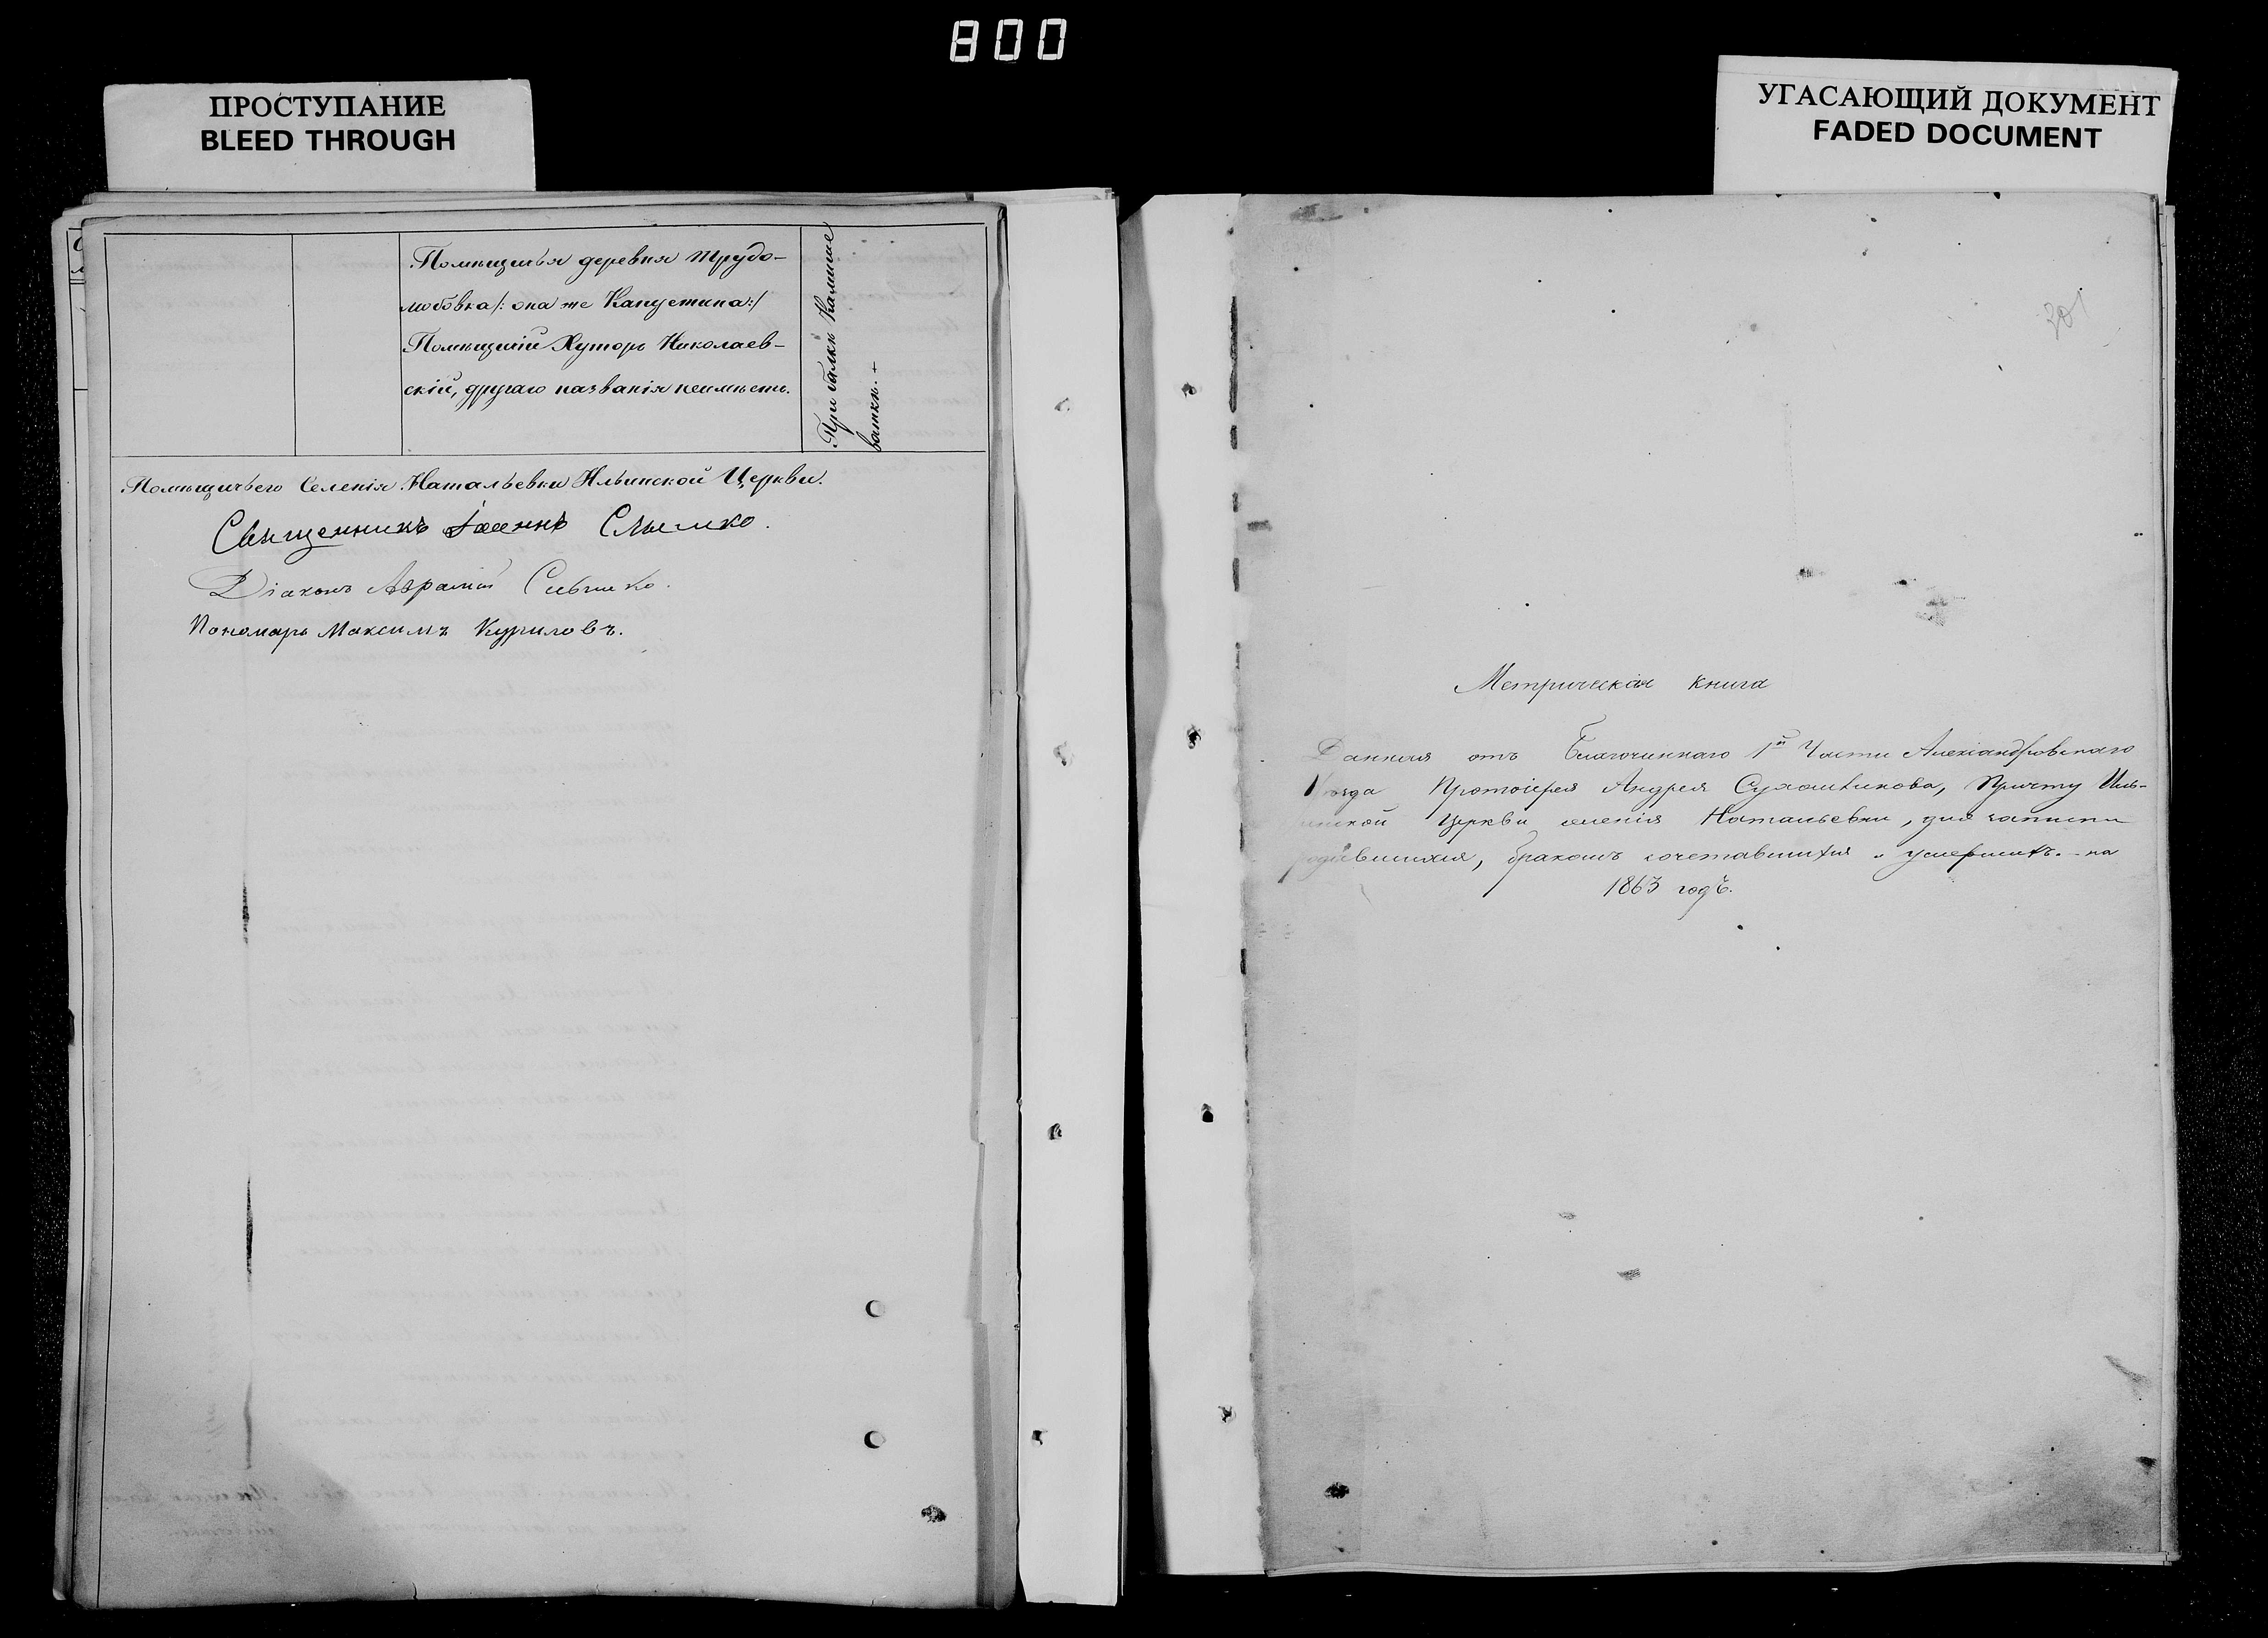 800
ПРОСТУПАНИЕ
BLEED THROUGH
УГАСАЮЩИЙ ДОКУМЕНТ
FADED DOCUMENT
Помѣщичья деревня Трудо-
любовка /: она же Капустина :/
Помѣщичій Хуторъ Николаев-
скій, другаго названія неимѣетъ.
При балкѣ Камыше
ваткѣ. +
Помѣщичьего Селенія Натальевки Ильинской Церкви.
Священникъ Іоаннъ
Діаконъ Аврамій
Пономарь Максимъ Куриловъ.
301
Метрическая книга
Данная отъ Благочиннаго 1й Части Александровскаго
Уѣзда Протоіерея Андрея Причту Иль-
инской Церкви селенія Натальевки, для записи
родившихся, бракомъ сочетавшихся и умершихъ. на
1863 годъ.